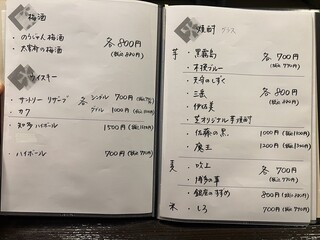 梅酒
・のうじゃん梅酒 各800円
・太宰府の梅酒 (税込880円)
ウイスキー
・サントリー リザーブ 各 シングル 700円
・サク ダブル 1000円
・知多ハイボール 1500円
・ハイボール 700円 (税込770円)
焼酎 グラス
芋 ・黒霧島 各700円
・木挽ブルー (税込770円)
・天令のしずく
・三岳 各800円
・伊佐美 (税込880円)
・芝オリジナル芋焼酎
・佐藤の黒 1000円
・魔王 1200円
麦 ・吹上 各700円
・博多の華 (税込770円)
・銀座のすずめ 800円 (税込880円)
米 ・しろ 700円 (税込770円)